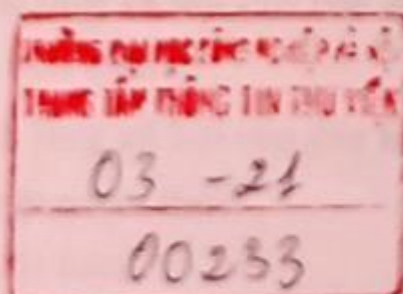 TRƯỜNG ĐẠI HỌC CÔNG NGHIỆP HÀ NỘI
TRUNG TÂM THÔNG TIN THƯ VIỆN
03 -21
00233